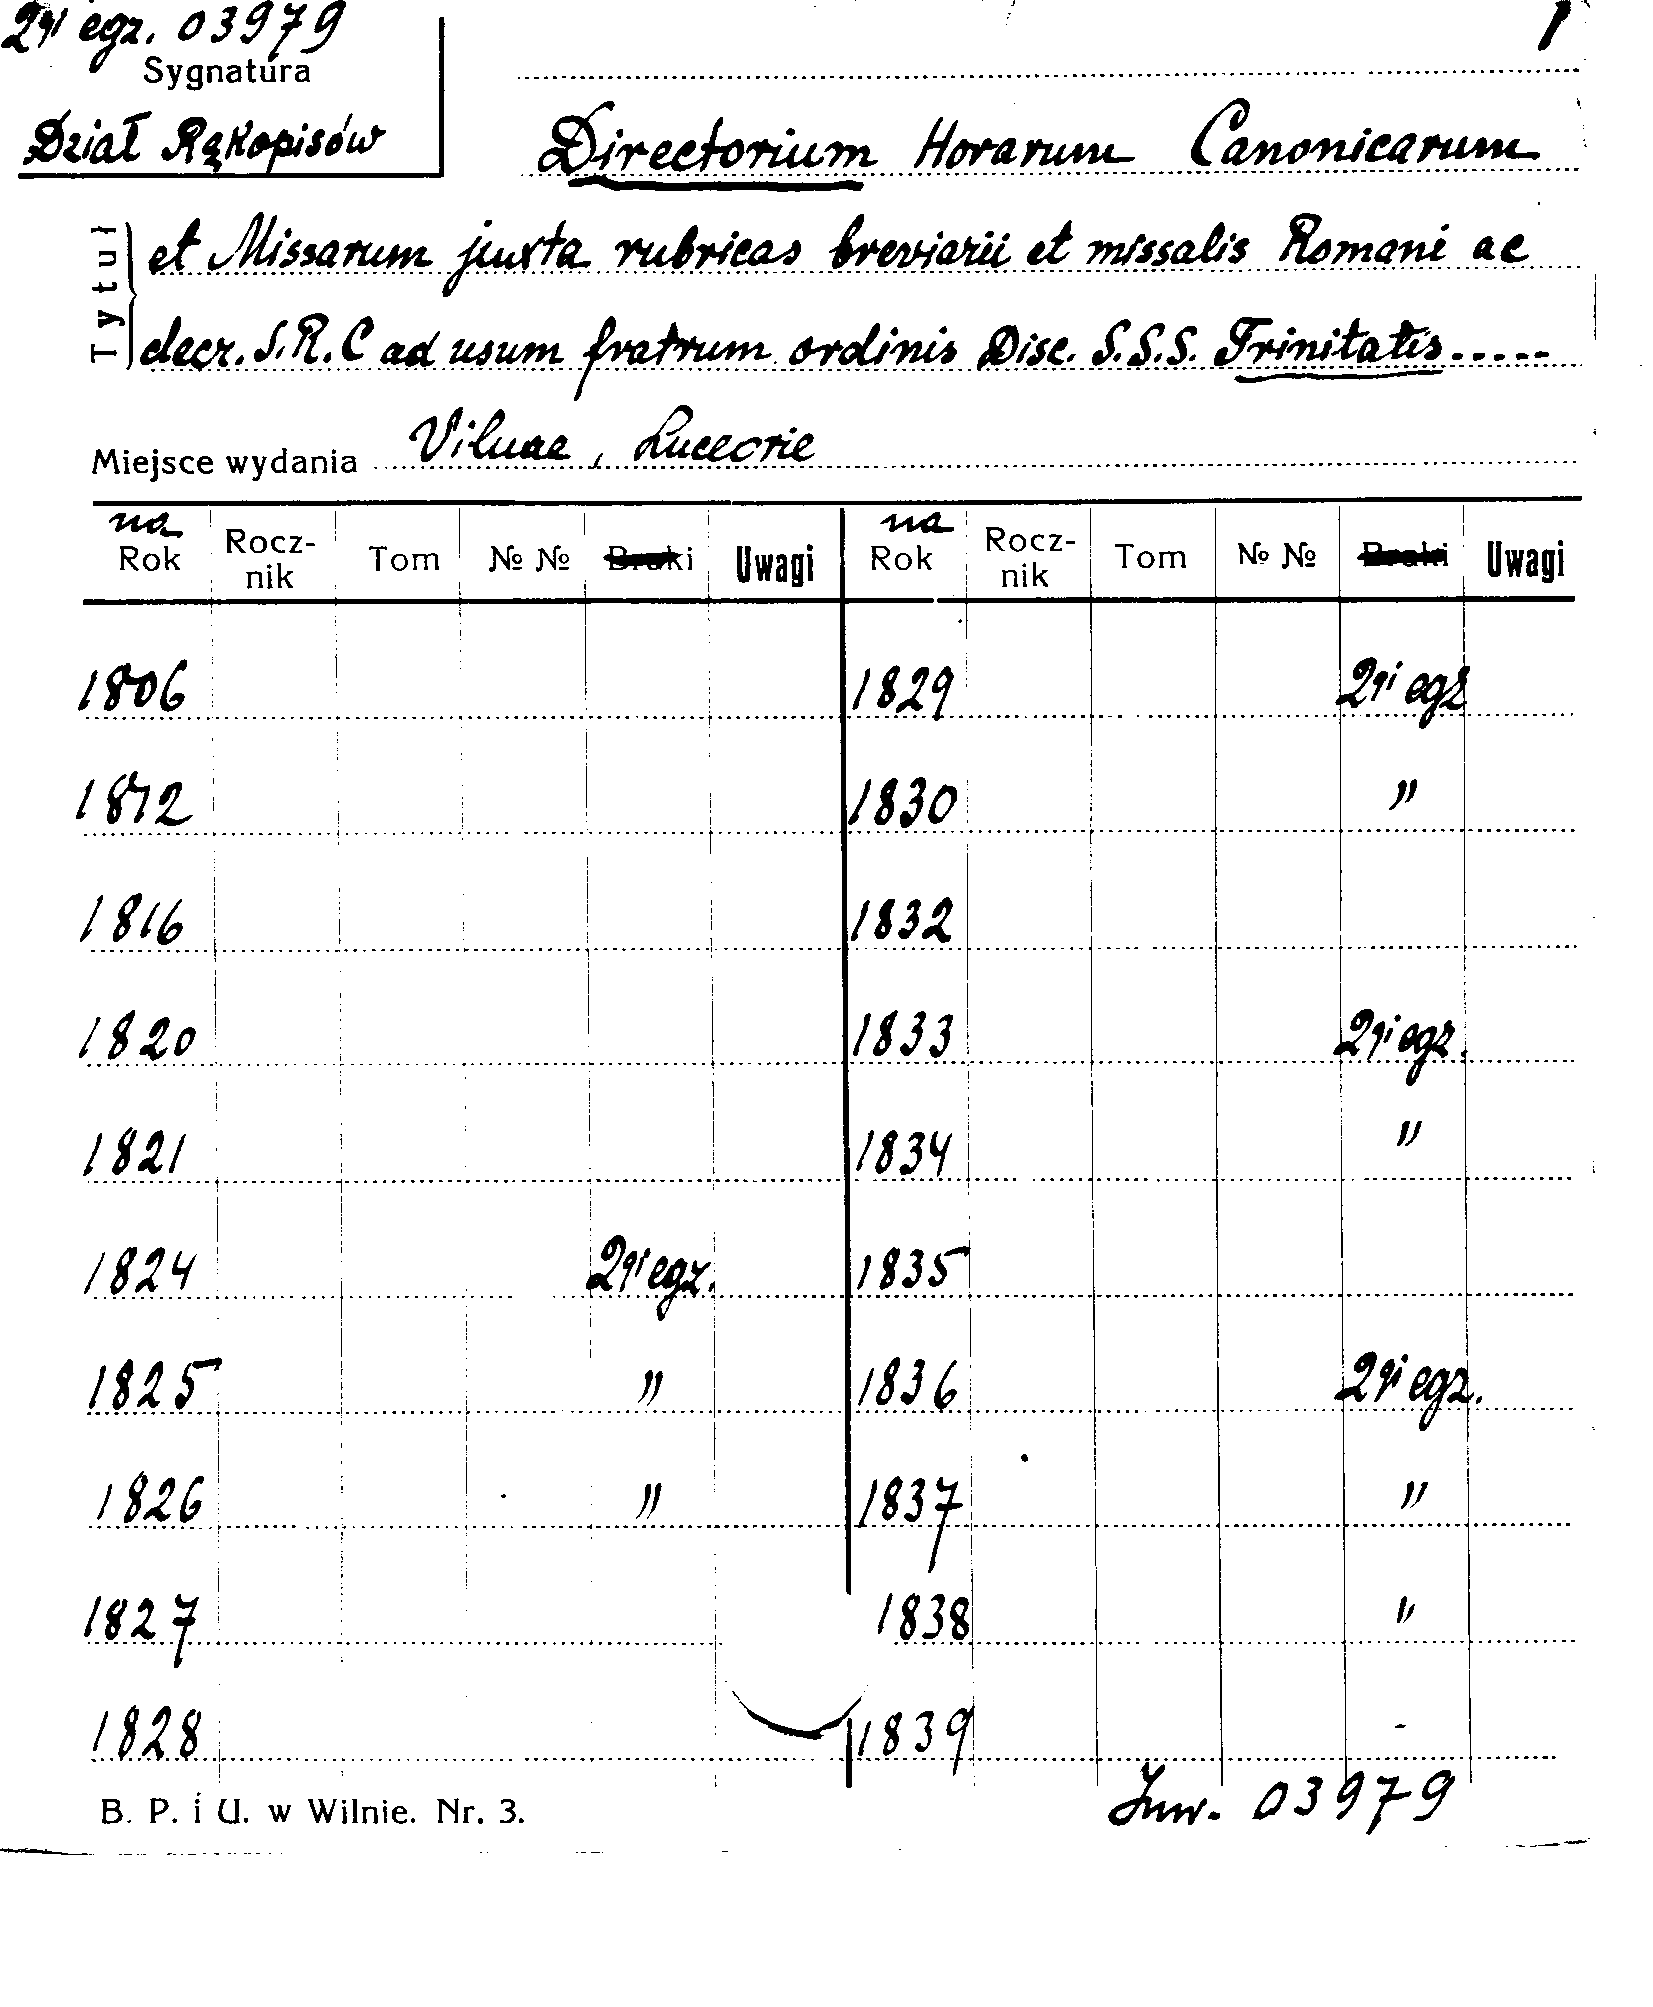 2gi egz. 03979
1
Sygnatura
Dział Rąkopisów
Directorium Horarum Canonicarum
Tytuł
et Missarum juxta rubricas breviarii et missalis Romani ac
decr. S.R.C ad usum fratrum ordinis Disc. S.S.S. Trinitatis.....
Miejsce wydania Vilnae, Luceorie
na Rok Rocz-nik Tom № № Braki Uwagi na Rok Rocz-nik Tom № № Braki Uwagi
1806 1829 2gi egz
1812 1830 "
1816 1832
1820 1833 2gi egz.
1821 1834 "
1824 2gi egz. 1835
1825 " 1836 2gi egz.
1826 " 1837 "
1827 1838 "
1828 1839 -
B. P. i U. w Wilnie. Nr. 3.
Inw. 03979